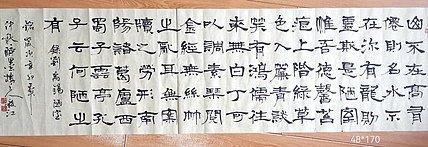 山不在高有
僊則名水不
在深有龍則
靈斯是陋室
惟吾德馨苔
痕上階綠草
色入簾青談
笑有鴻儒往
來無白丁可
以調素琴閱
金經無絲竹
之亂耳無案
牘之勞形南
陽諸葛廬西
蜀子雲亭孔
子云何陋之
有
錄劉禹錫陋室
銘歲次辛卯
48*170